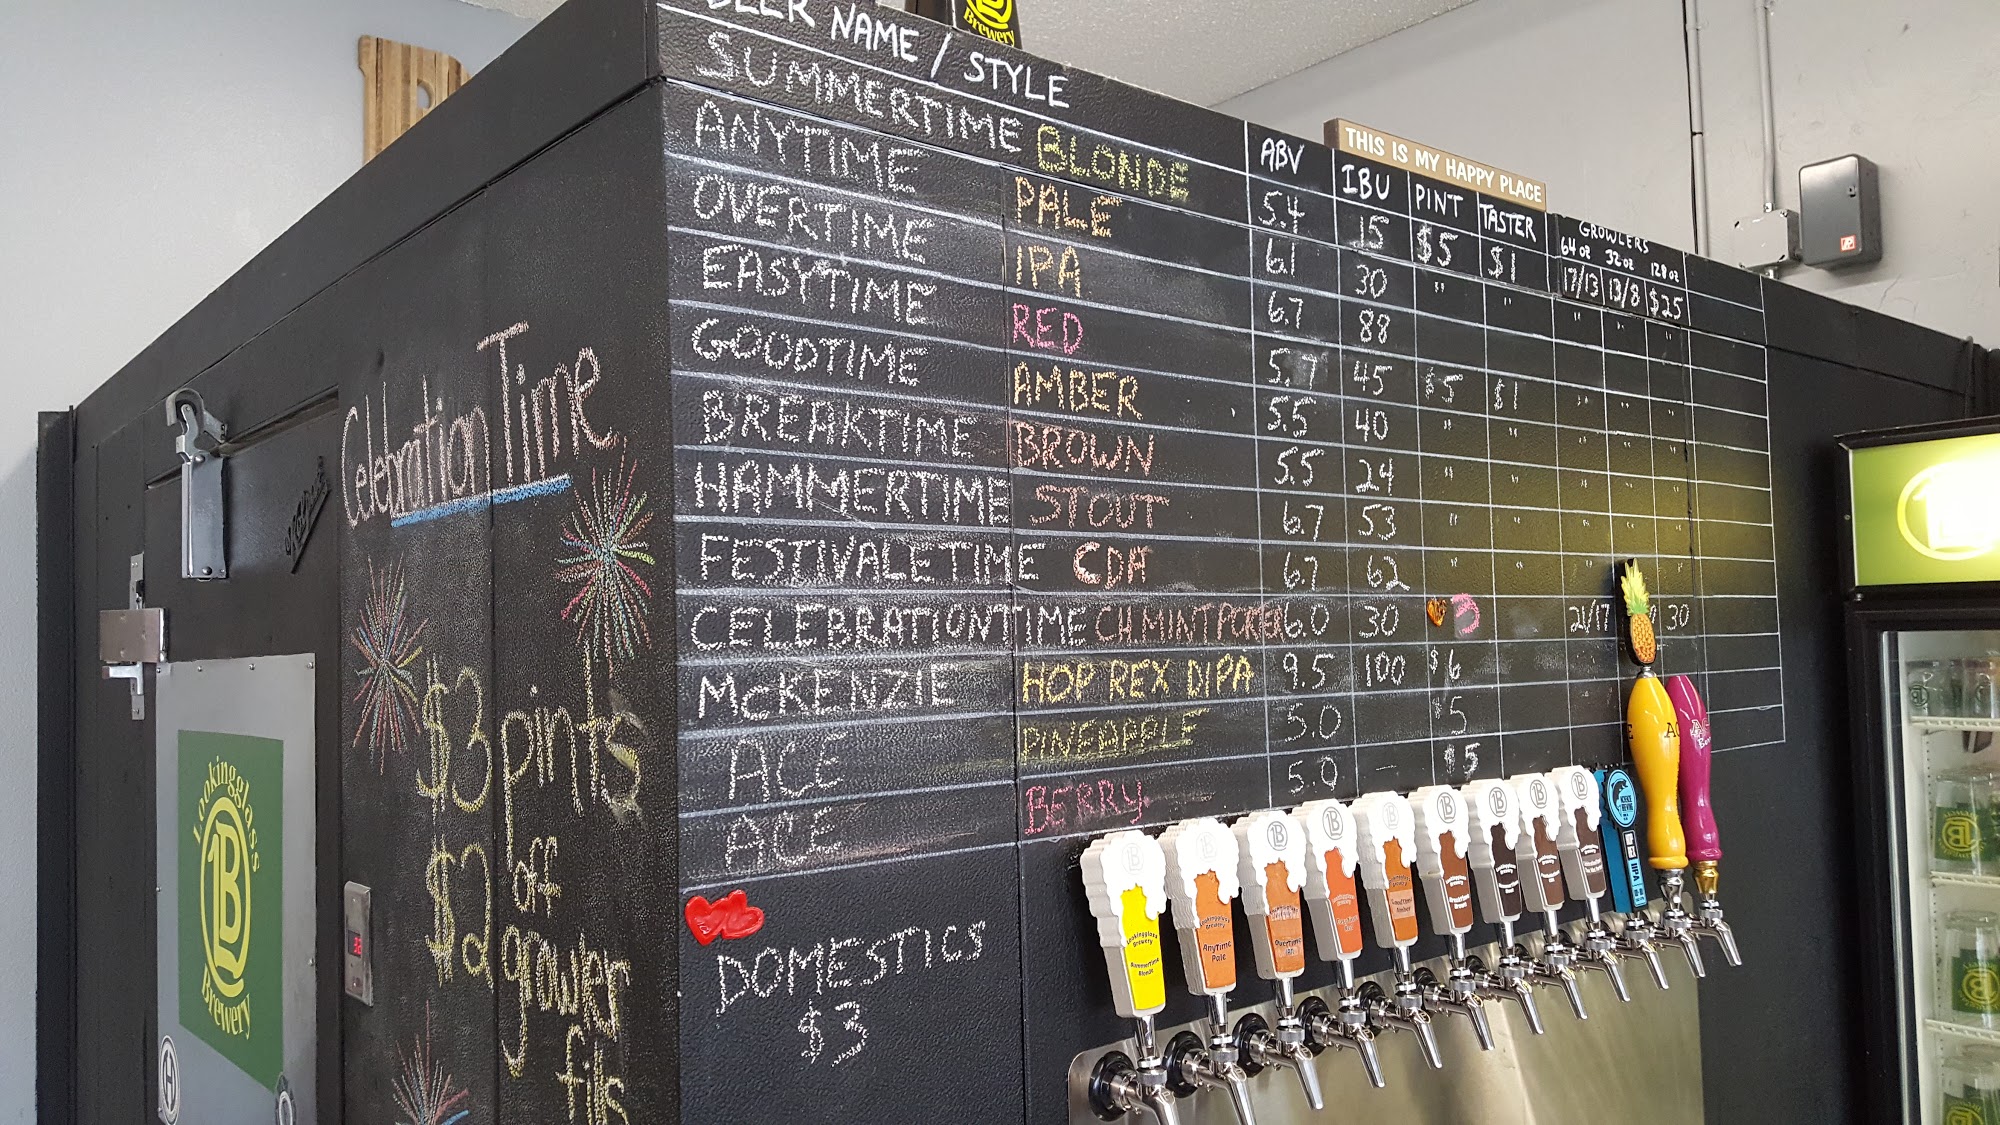 Brewery
BEER NAME / STYLE
ABV IBU PINT TASTER GROWLERS
64 oz 32 oz 128 oz
THIS IS MY HAPPY PLACE
SUMMERTIME BLONDE 5.4 15 $5 $1 17/13 13/8 $25
ANYTIME PALE 6.1 30 " " " " "
OVERTIME IPA 6.7 88
EASYTIME RED 5.7 45 $5 $1 " " "
GOODTIME AMBER 5.5 40 " " " " "
BREAKTIME BROWN 5.5 24 " " " " "
HAMMERTIME STOUT 6.7 53 " " " " "
FESTIVALETIME CDA 6.7 62 " "
CELEBRATIONTIME CH.MINT PORTER 6.0 30 3 21/17 30
McKENZIE HOP REX DIPA 9.5 100 $6
ACE PINEAPPLE 5.0 $5
ACE BERRY 5.0 — $5
DOMESTICS
$3
Celebration Time
$3 pints
$2 off
growler
fills
Lookingglass
LB
Brewery
Lookingglass
Brewery
Summertime
Blonde
Lookingglass
Brewery
AnyTime
Pale
Overtime
IPA
HOP
REX
DIPA